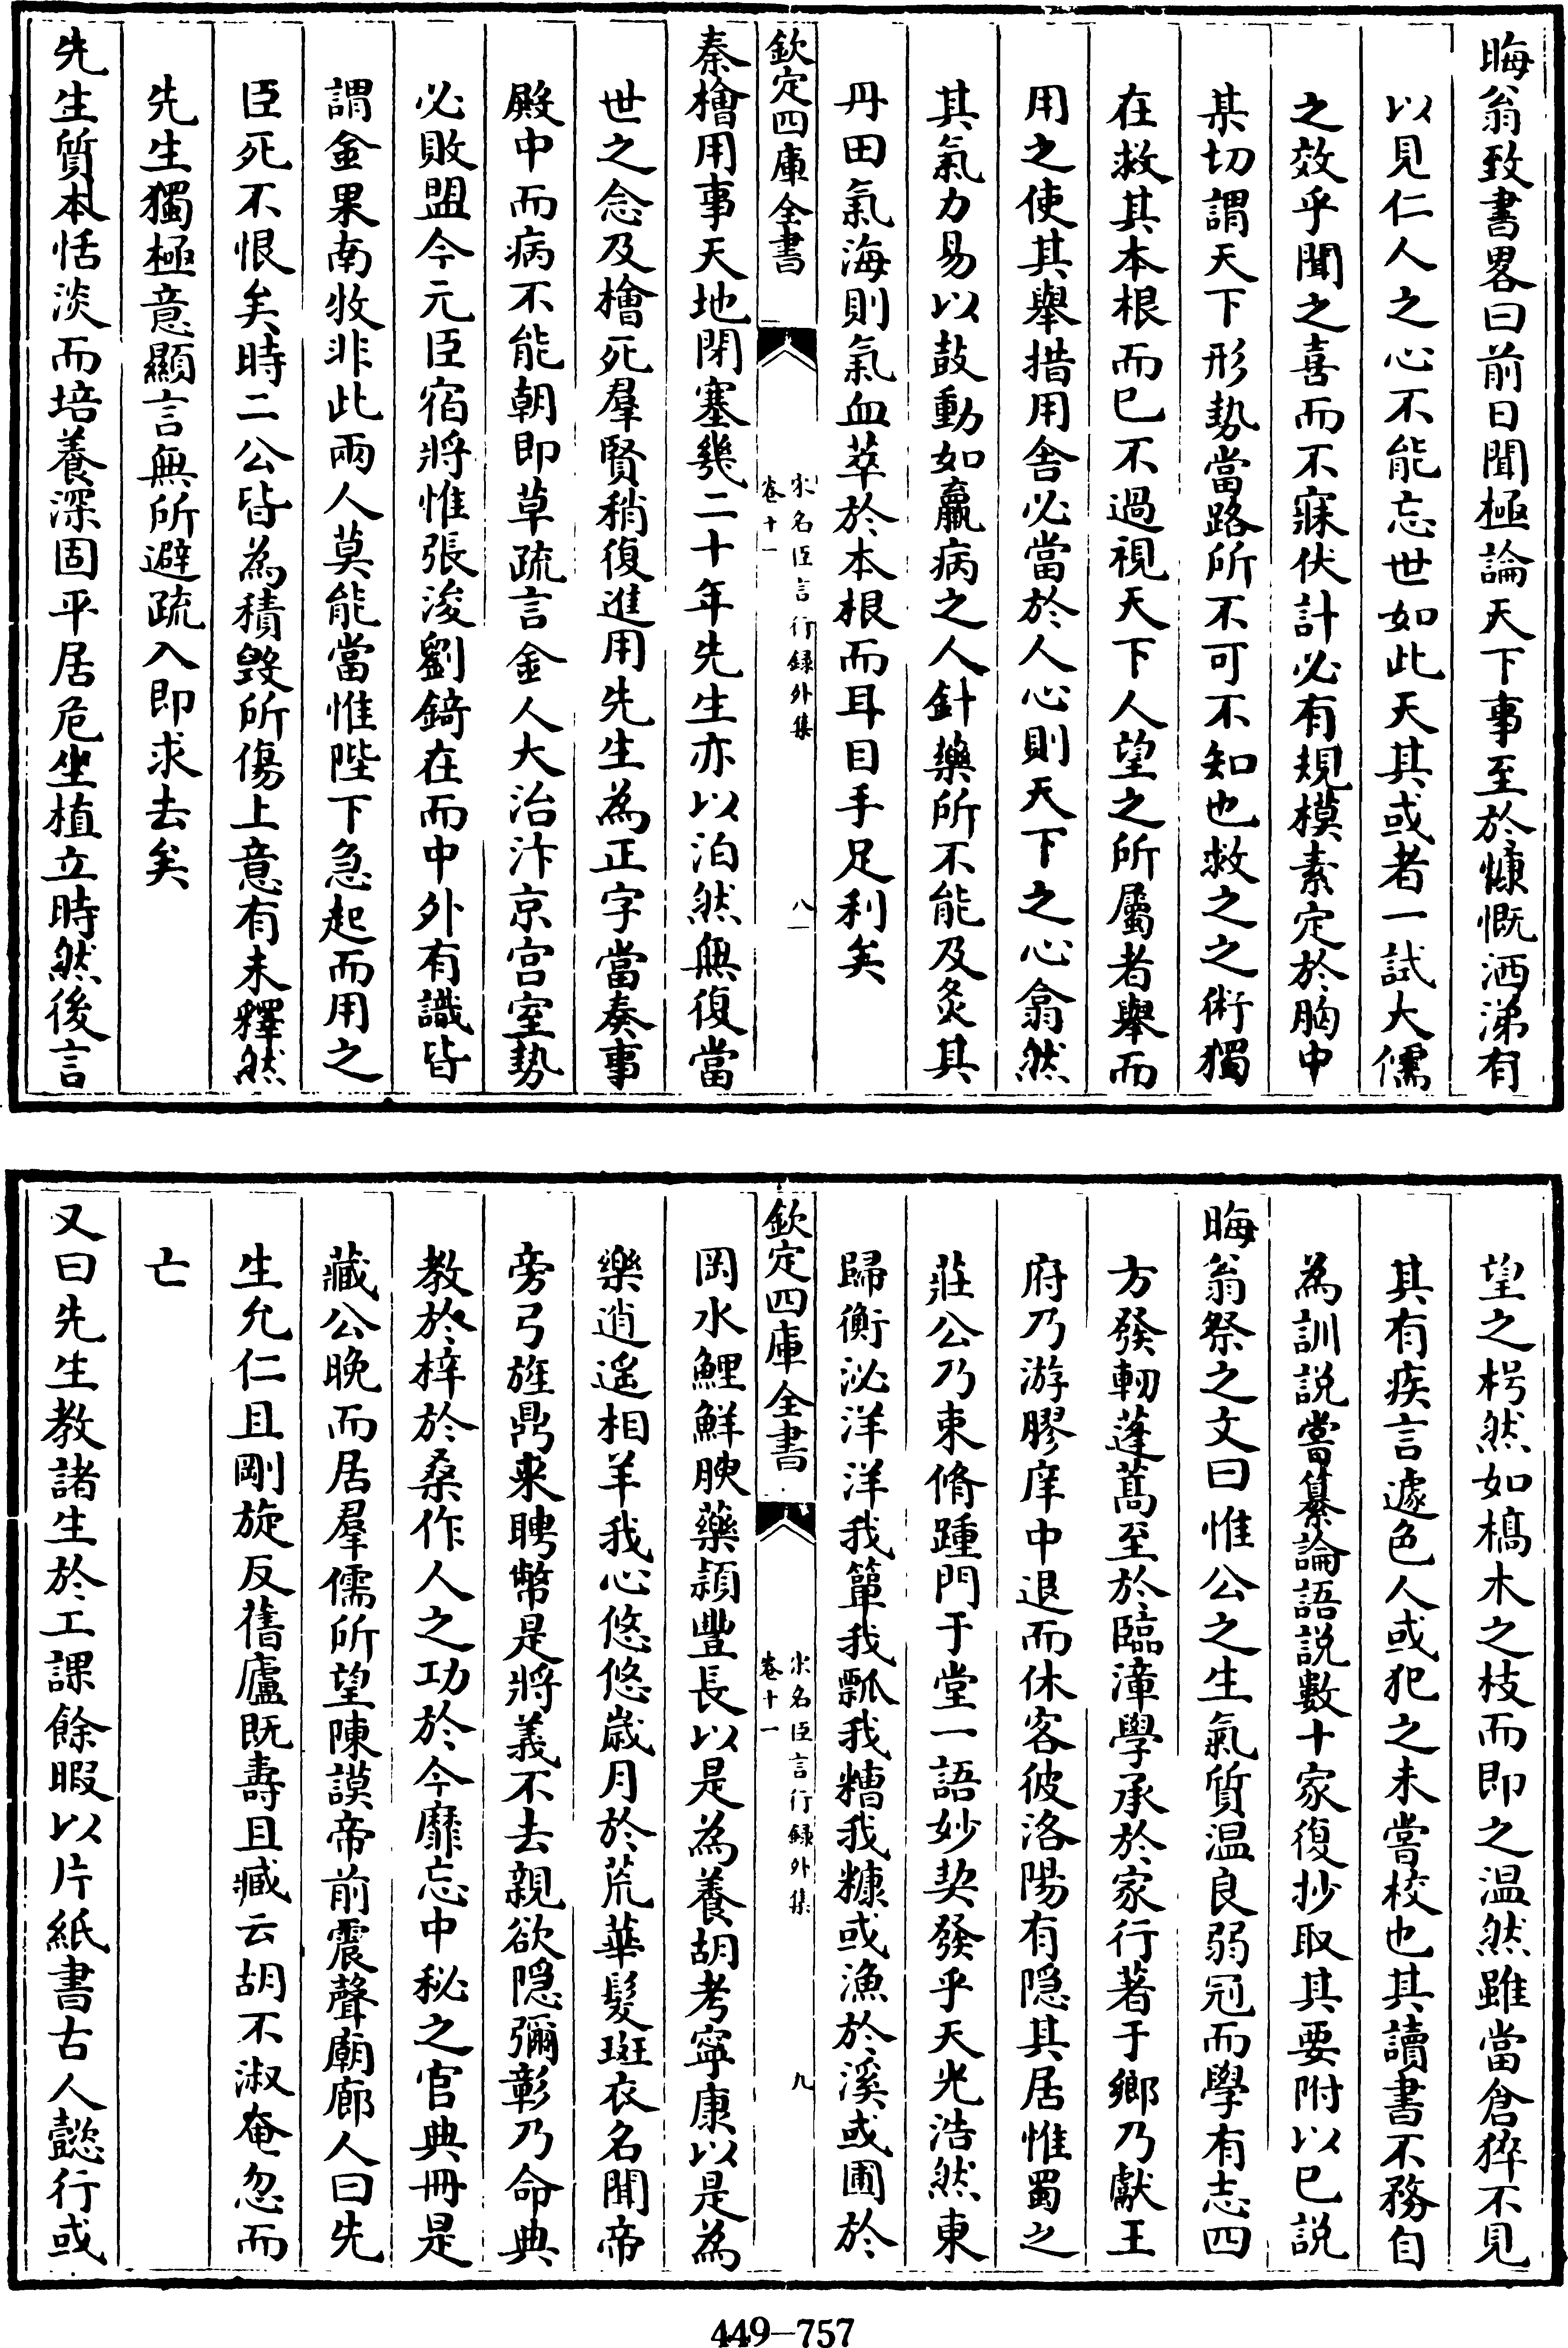 晦翁致書畧曰前日聞極論天下事至於慷慨洒涕有
以見仁人之心不能忘世如此天其或者一試大儒
之效乎聞之喜而不寐伏計必有規模素定於胸中
某切謂天下形勢當路所不可不知也救之之術獨
在救其本根而已不過視天下人望之所屬者舉而
用之使其舉措用舍必當於人心則天下之心翕然
其氣力易以鼓動如羸病之人針藥所不能及炙其
丹田氣海則氣血萃於本根而耳目手足利矣
欽定四庫全書
宋名臣言行録外集
卷十一
八
秦檜用事天地閉塞幾二十年先生亦以泊然無復當
世之念及檜死羣賢稍復進用先生為正字當奏事
殿中而病不能朝即草疏言金人大治汴京宫室勢
必敗盟今元臣宿將惟張浚劉錡在而中外有識皆
謂金果南牧非此兩人莫能當惟陛下急起而用之
臣死不恨矣時二公皆為積毁所傷上意有未釋然
先生獨極意顯言無所避疏入即求去矣
先生質本恬淡而培養深固平居危坐植立時然後言
望之枵然如槁木之枝而即之温然雖當倉猝不見
其有疾言遽色人或犯之未嘗校也其讀書不務自
為訓説嘗纂論語説數十家復抄取其要附以已説
晦翁祭之文曰惟公之生氣質温良弱冠而學有志四
方發軔蓬蒿至於臨漳學承於家行著于鄉乃獻王
府乃游膠庠中退而休客彼洛陽有隠其居惟蜀之
莊公乃束脩踵門于堂一語妙契發乎天光浩然東
歸衡泌洋洋我簞我瓢我糟我糠或漁於溪或圃於
欽定四庫全書
宋名臣言行録外集
卷十一
九
岡水鯉鮮腴藥頴豐長以是為養胡考寧康以是為
樂逍遥相羊我心悠悠歲月於荒華髮斑衣名聞帝
旁弓旌鼎来聘幣是將義不去親欲隠彌彰乃命典
教於梓於桑作人之功於今靡忘中秘之官典冊是
藏公晚而居羣儒所望陳謨帝前震聲廟廊人曰先
生允仁且剛旋反舊廬既壽且臧云胡不淑奄忽而
亡
又曰先生教諸生於工課餘暇以片紙書古人懿行或
449-757